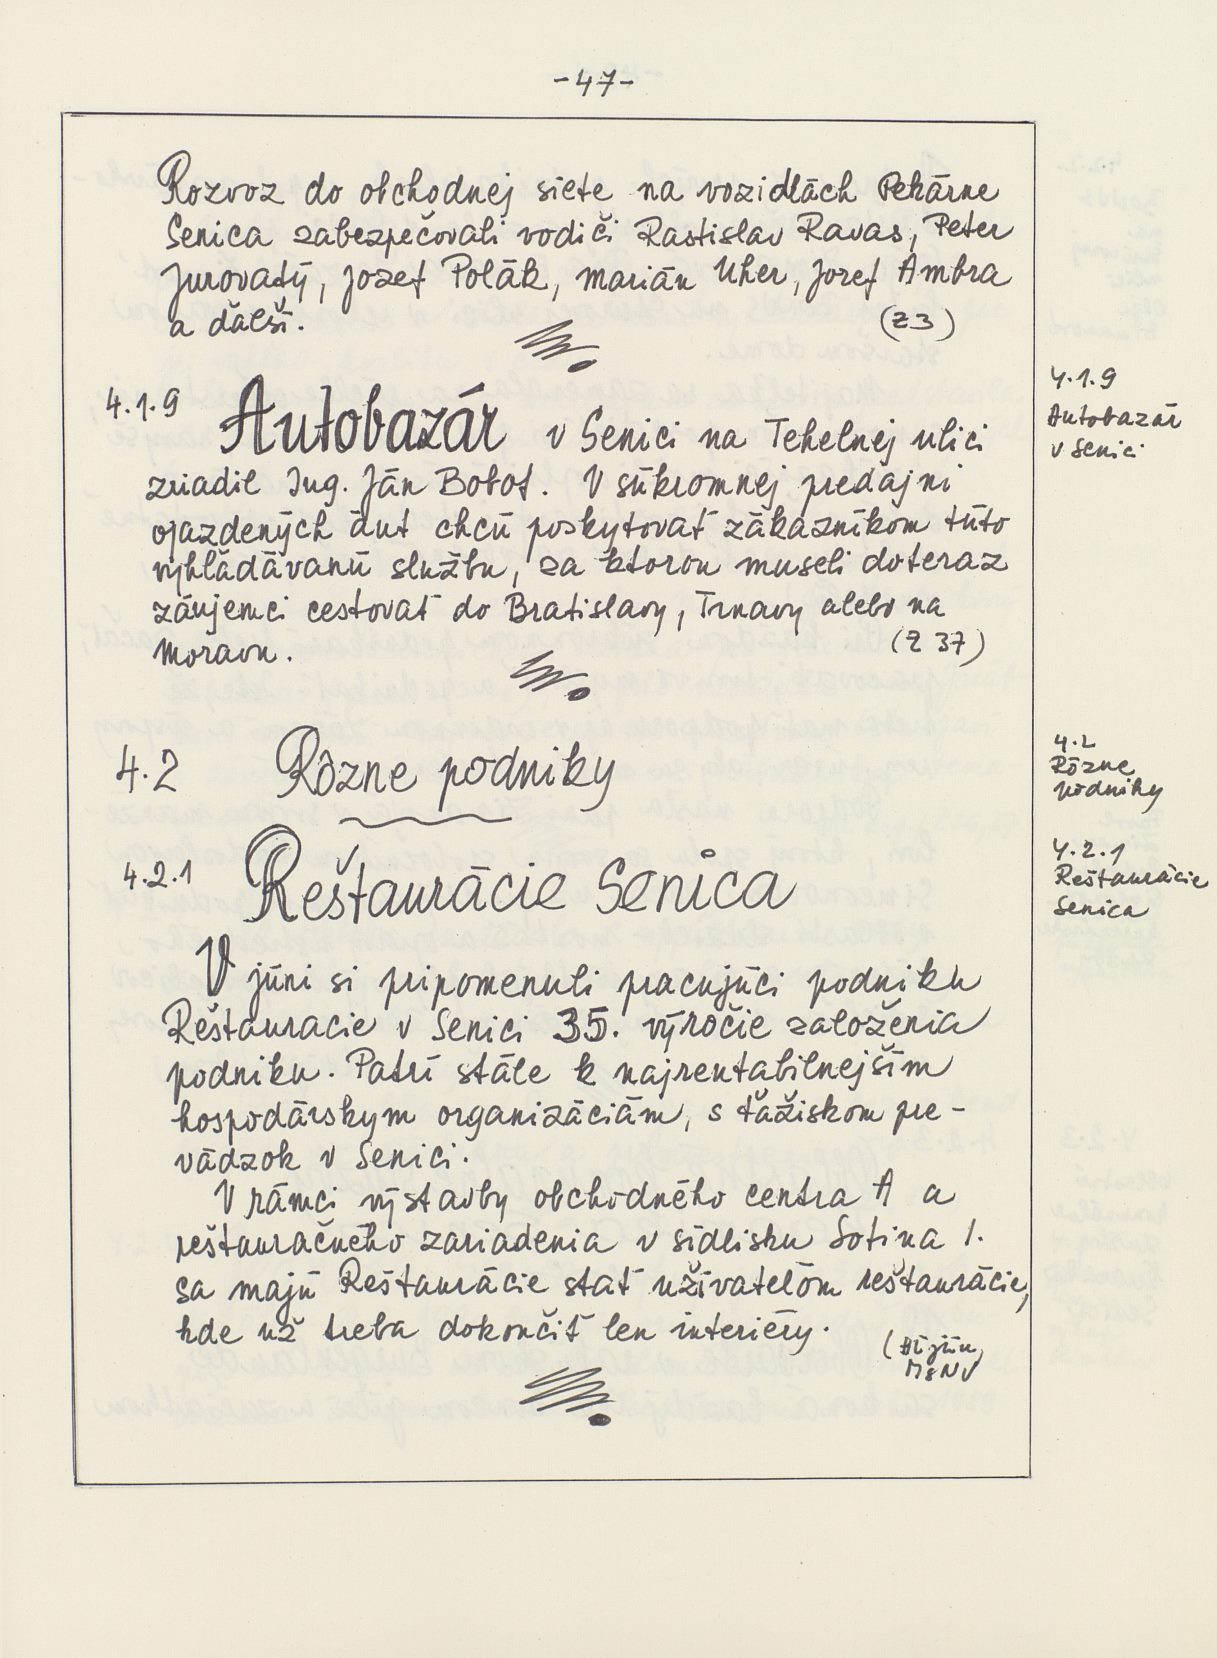 -47-
Rozvoz do obchodnej siete na vozidlách Pekárne
Senica zabezpečovali vodiči Rastislav Ravas, Peter
Jurovatý, Jozef Polák, Marián Uher, Jozef Ambra
a ďalší. (Z3)
4.1.9 Autobazár v Senici na Tehelnej ulici
zriadil Ing. Ján Bobot. V súkromnej predajni
ojazdených áut chcú poskytovať zákazníkom túto
vyhľadávanú službu, za ktorou museli doteraz
záujemci cestovať do Bratislavy, Trnavy alebo na
Moravu. (Z 37)
4.1.9
Autobazár
v Senici
4.2 Rôzne podniky
4.2
Rôzne
podniky
4.2.1 Reštaurácie Senica
4.2.1
Reštaurácie
Senica
V júni si pripomenuli pracujúci podniku
Reštauracie v Senici 35. výročie založenia
podniku. Patrí stále k najrentabilnejším
hospodárskym organizáciám, s ťažiskom pre-
vádzok v Senici.
V rámci výstavby obchodného centra A a
reštauračného zariadenia v sídlisku Sotina I.
sa majú Reštaurácie stať užívateľom reštaurácie,
kde už treba dokončiť len interiéry.
MsNV